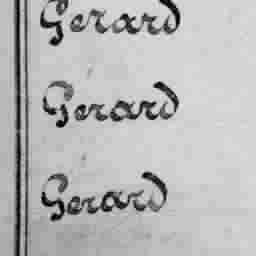 Gerard
Gerard
Gerard